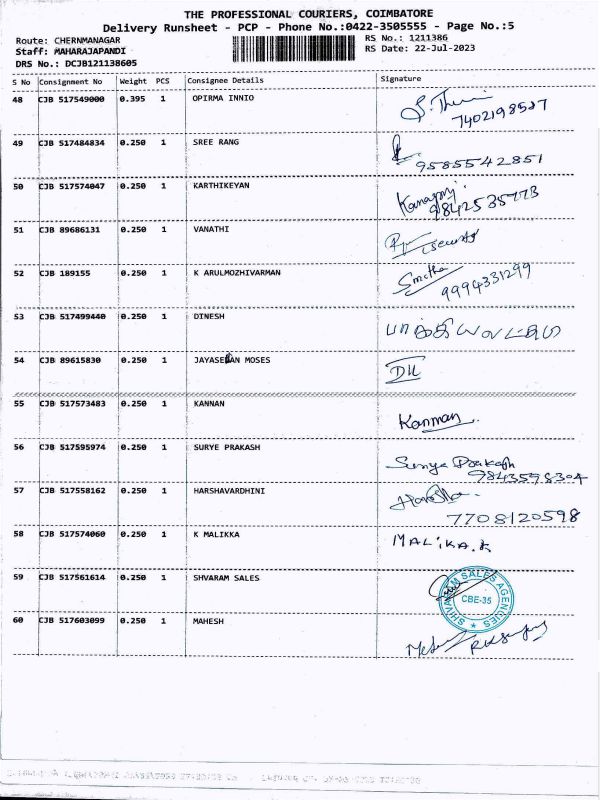 THE PROFESSIONAL COURIERS, COIMBATORE
Delivery Runsheet - PCP - Phone No.:0422-3505555 - Page No.:5
Route: CHERNMANAGAR RS No.: 1211386
Staff: MAHARAJAPANDI RS Date: 22-Jul-2023
DRS No.: DCJB121138605
S No Consignment No Weight PCS Consignee Details Signature
48 CJB 517549000 0.395 1 OPIRMA INNIO
7402198517
49 CJB 517484834 0.250 1 SREE RANG
9585542851
50 CJB 517574047 0.250 1 KARTHIKEYAN
9842535773
51 CJB 89686131 0.250 1 VANATHI
52 CJB 189155 0.250 1 K ARULMOZHIVARMAN
Smitha
9994331299
53 CJB 517499440 0.250 1 DINESH
54 CJB 89615830 0.250 1 JAYASEELAN MOSES
55 CJB 517573483 0.250 1 KANNAN
Kannan
56 CJB 517595974 0.250 1 SURYE PRAKASH
Surya Prakash
9843598304
57 CJB 517558162 0.250 1 HARSHAVARDHINI
7708120598
58 CJB 517574060 0.250 1 K MALIKKA
MALiKA.K
59 CJB 517561614 0.250 1 SHVARAM SALES
SHIVARAM SALES AGENCIES
CBE-35
60 CJB 517603099 0.250 1 MAHESH